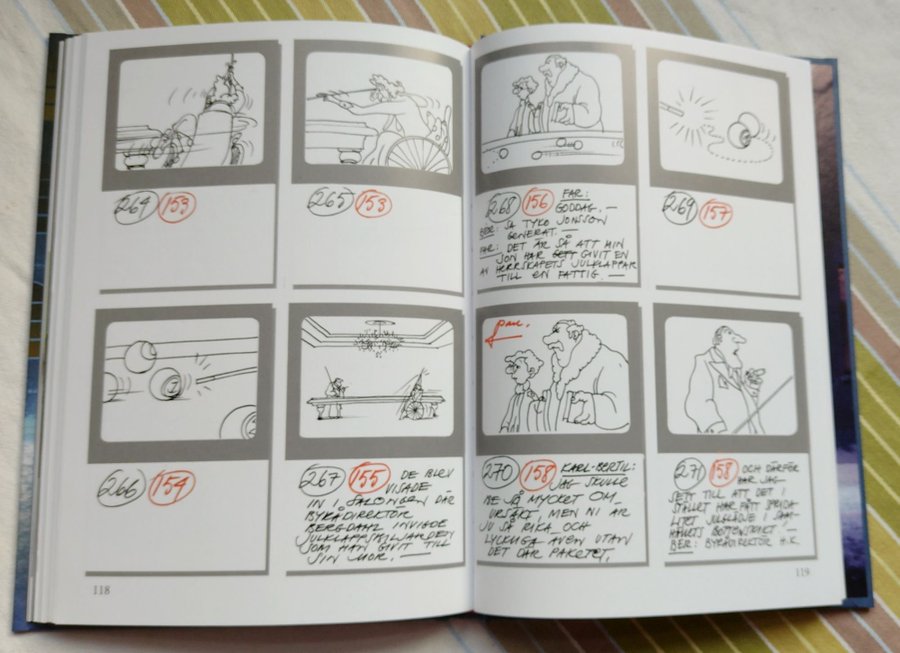 264 153
265 153
1
266 154
267 155 DE BLEV
VISADE
IN I SALONGEN DÄR
BYRÅDIREKTÖR
BERGDAHL INVIGDE
JULKLAPPSBILJARDEN
SOM HAN GIVIT TILL
SIN MOR. —
118
268 156 FAR:
GODDAG. —
BER: SA TYKO JONSSON
GENERAT. —
FAR: DET ÄR SÅ ATT MIN
SON HAR GETT GIVIT EN
AV HERRSKAPETS JULKLAPPAR
TILL EN FATTIG. —
269 157
pan.
270 158 KARL-BERTIL:
JAG SKULLE
BE SÅ MYCKET OM
URSÄKT, MEN NI ÄR
JU SÅ RIKA OCH
LYCKLIGA ÄVEN UTAN
DET DÄR PAKETET.
271 158 OCH DÄRFÖR
HAR JAG
SETT TILL ATT DET I
STÄLLET HAR FÅTT SPRIDA
LITET JULGLÄDJE I SAM-
HÄLLETS BOTTENSKIKT! —
BER: BYRÅDIREKTÖR H.K.
119